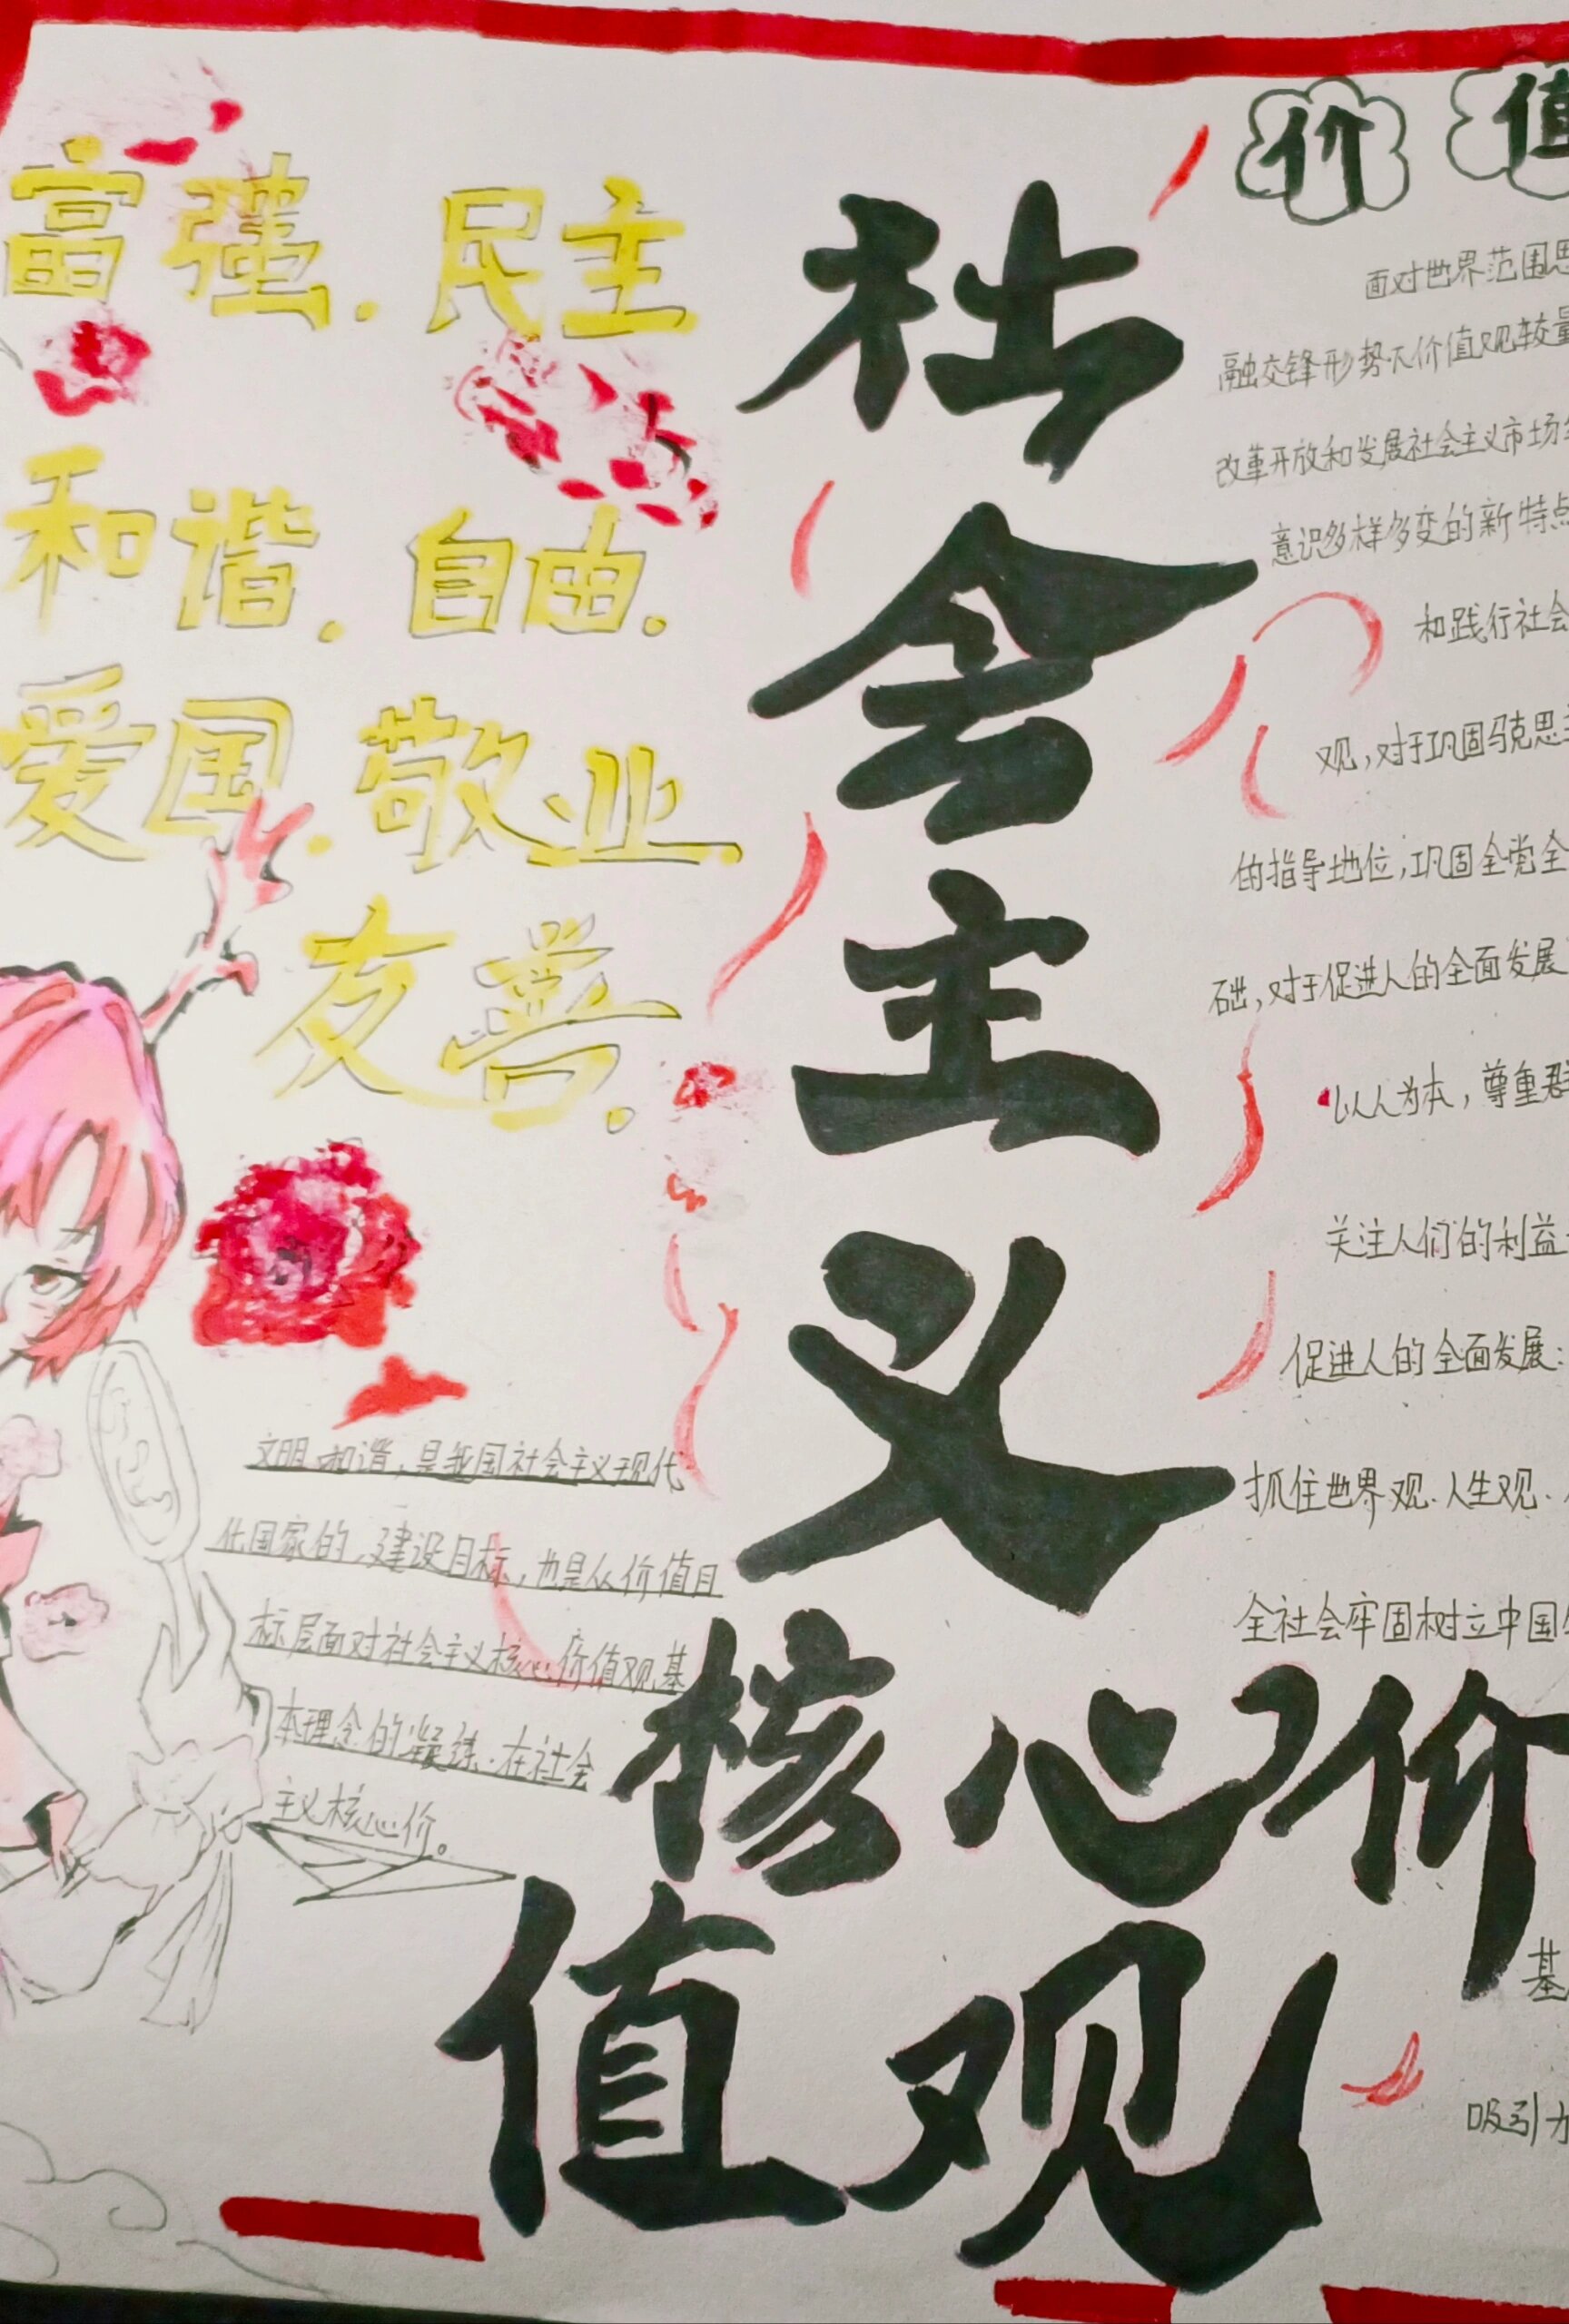 富强.民主
和谐.自由.
爱国.敬业.
友善.
社
会
主
义
核心价
值观
文明和谐,是我国社会主义现代
化国家的,建设目标,也是从价值目
标层面对社会主义核心价值观基
本理念的凝练.在社会
主义核心价。
价值
面对世界范围思
融交锋形势下价值观较量
改革开放和发展社会主义市场
意识多样多变的新特点
和践行社会
观,对于巩固马克思主
的指导地位,巩固全党全
础,对于促进人的全面发展
以人为本,尊重群
关注人们的利益
促进人的全面发展:
抓住世界观.人生观.
全社会牢固树立中国
基
吸引力